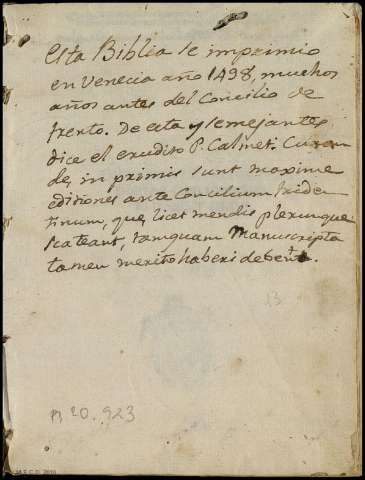 Esta Biblia se imprimio
en Venecia año 1498, muchos
años antes del Concilio de
trento. De esta y semejantes
dice el erudito P. Calmet. Curan
dę, in primis sunt maxime
editiones ante Concilium triden
tinum, quę licet mendis plerumque
scateant, tamquam Manuscripta
tamen merito haberi debent.
13
Rº 0. 923